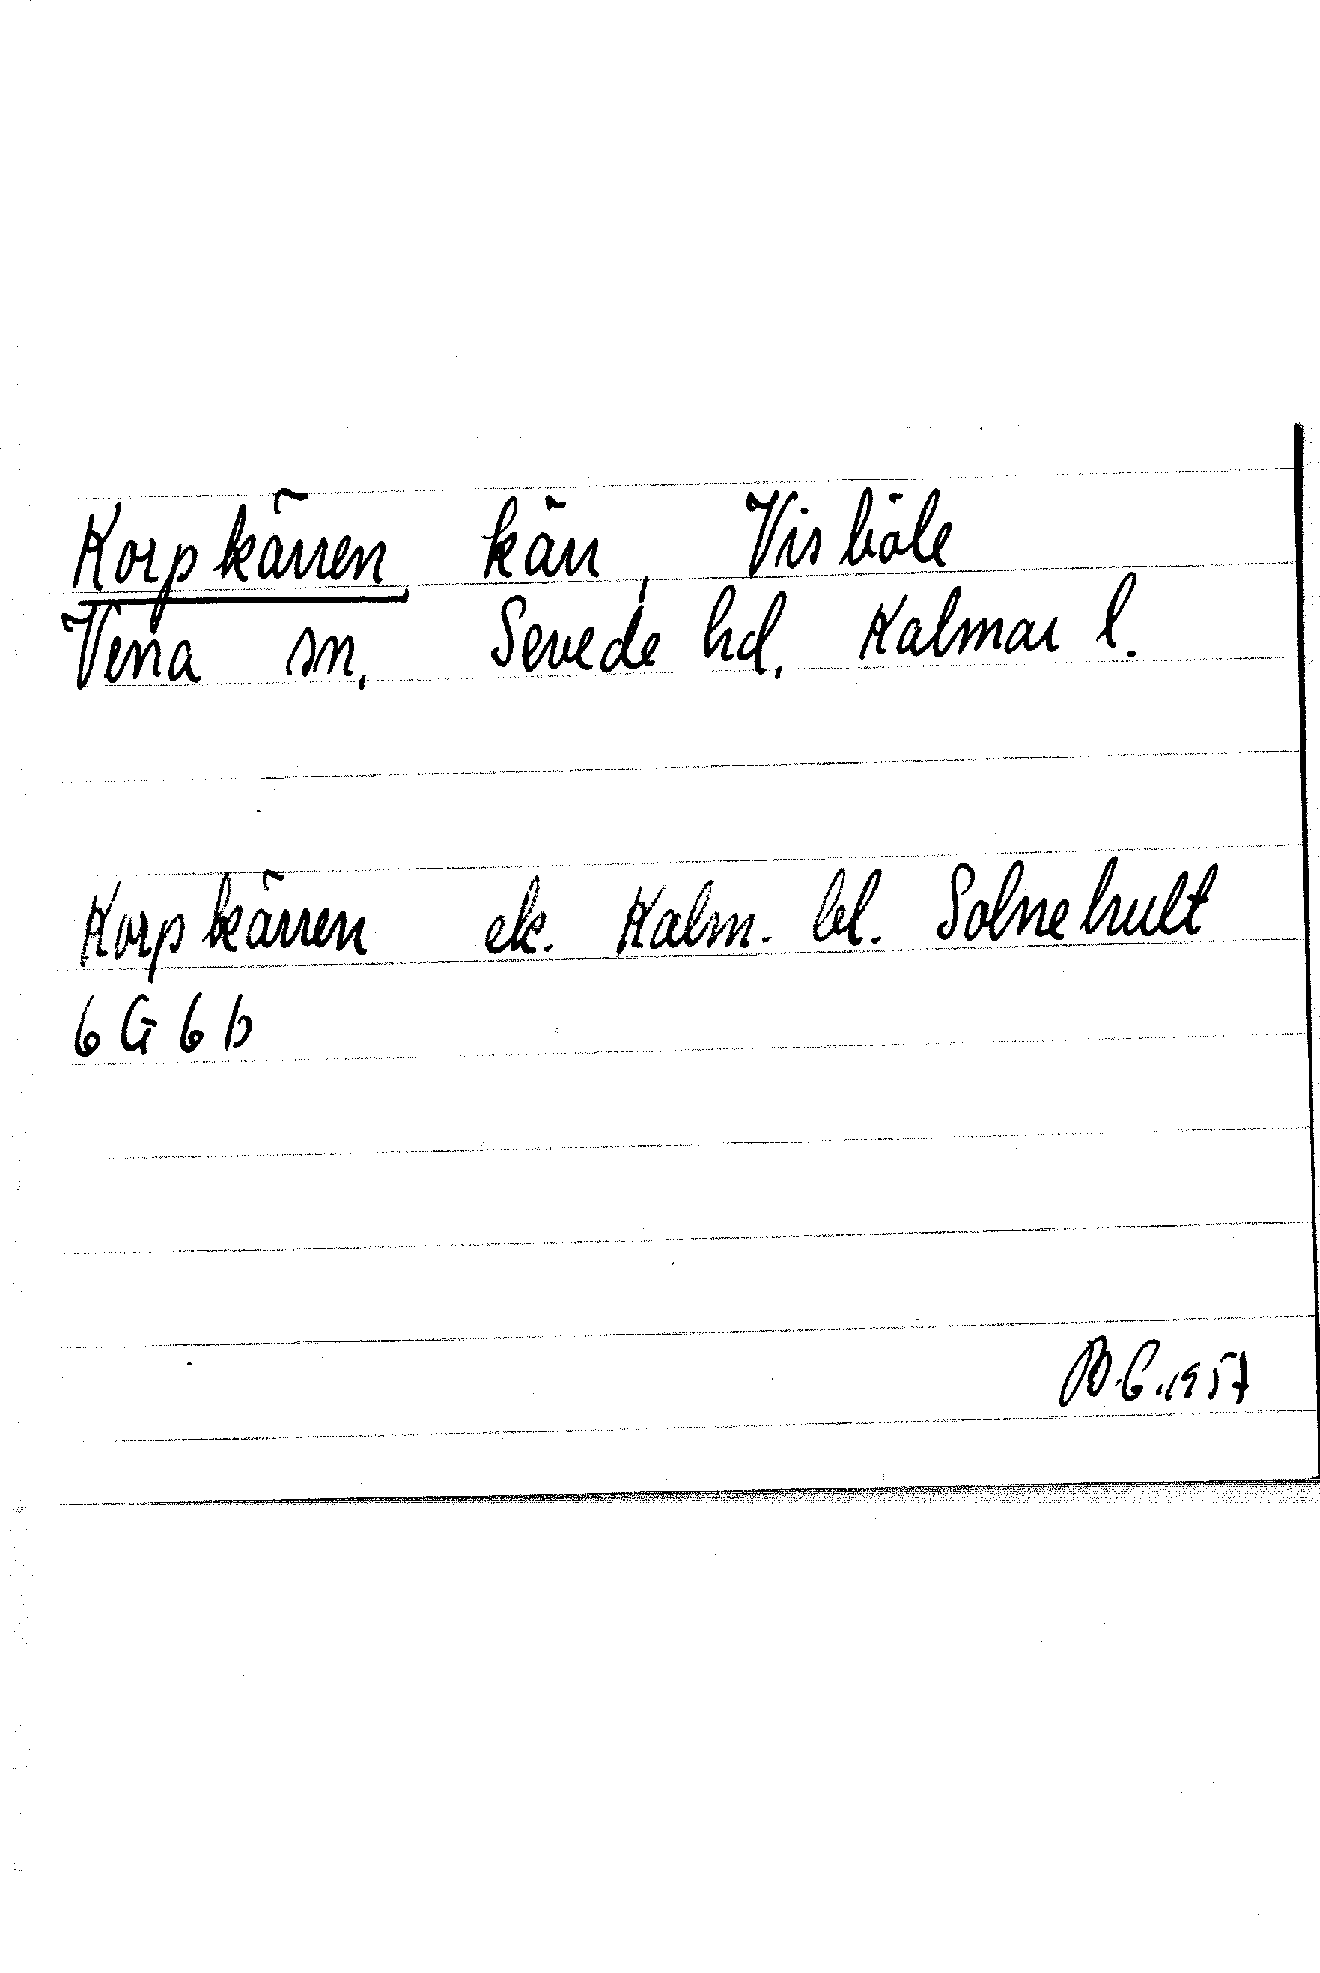 Korpkärren kärr, Visböle
Vena sn, Sevede hd, Kalmar l.
Korpkärren ek. Kalm. bl. Solnehult
6 G 6 b
B.G.1957